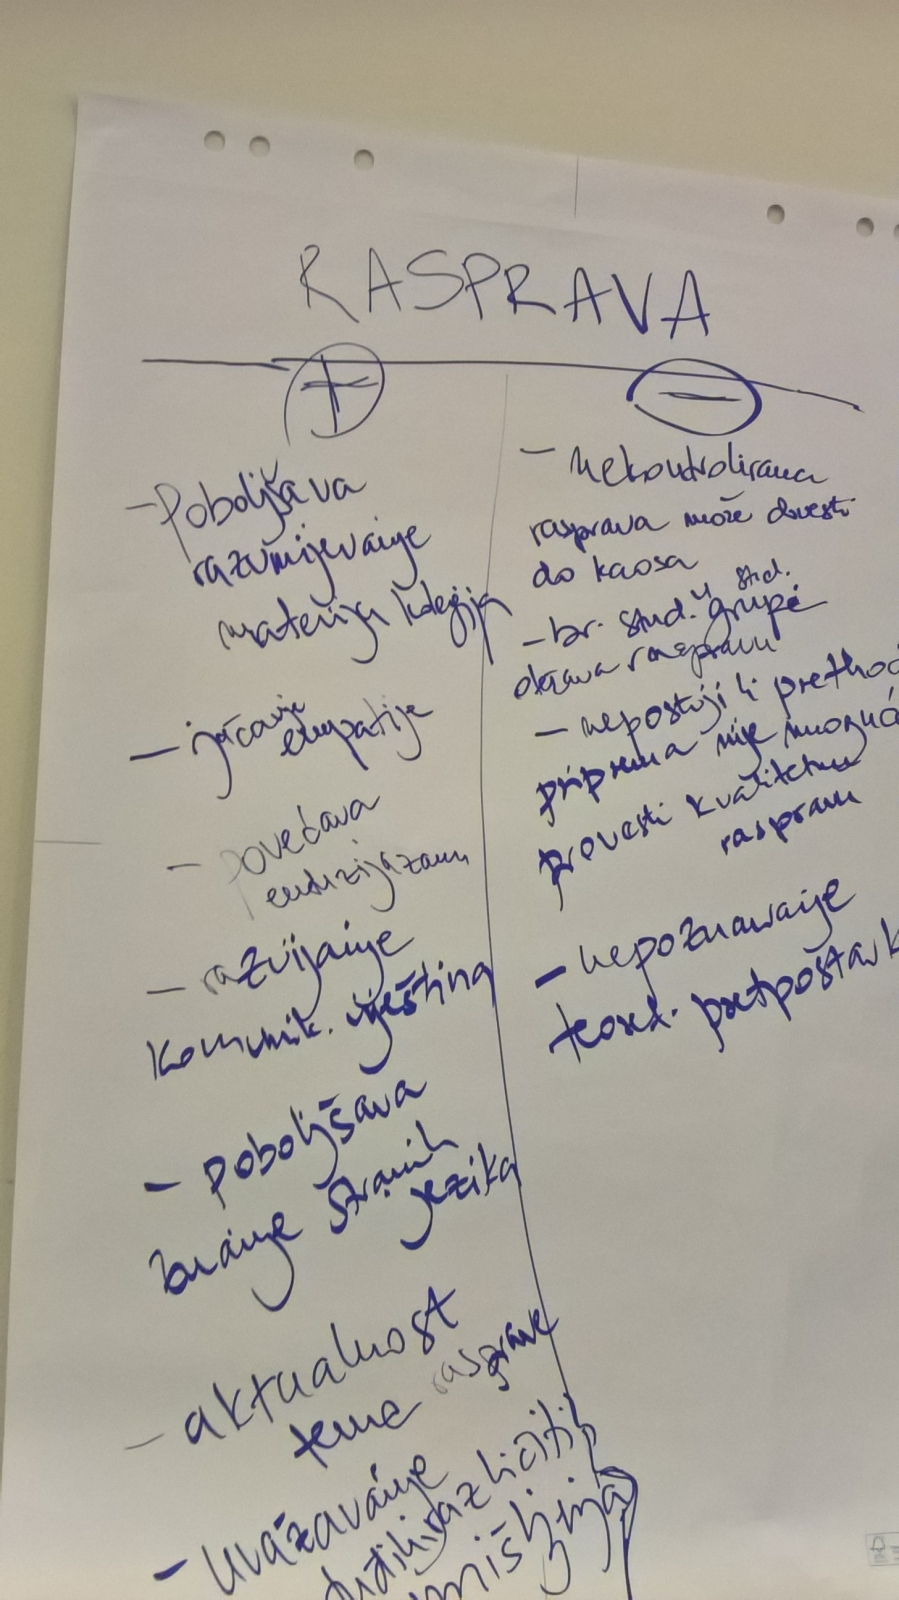 RASPRAVA
+
- Poboljšava
razumijevanje
materija kolegija
- jačanje
empatije
- povećava
entuzijazam
- razvijanje
komunik. vještina
- poboljšava
znanje stranih
jezika
- aktualnost
teme rasprave
- uvažavanje
različitih
mišljenja
-
- nekontrolirana
rasprava može dovesti
do kaosa
- br. stud. u stud.
grupi
rasprava
- ne postoji li prethod
priprema nije moguć
provesti kvalitetnu
raspravu
- nepoznavanje
teoret. pretpostavk